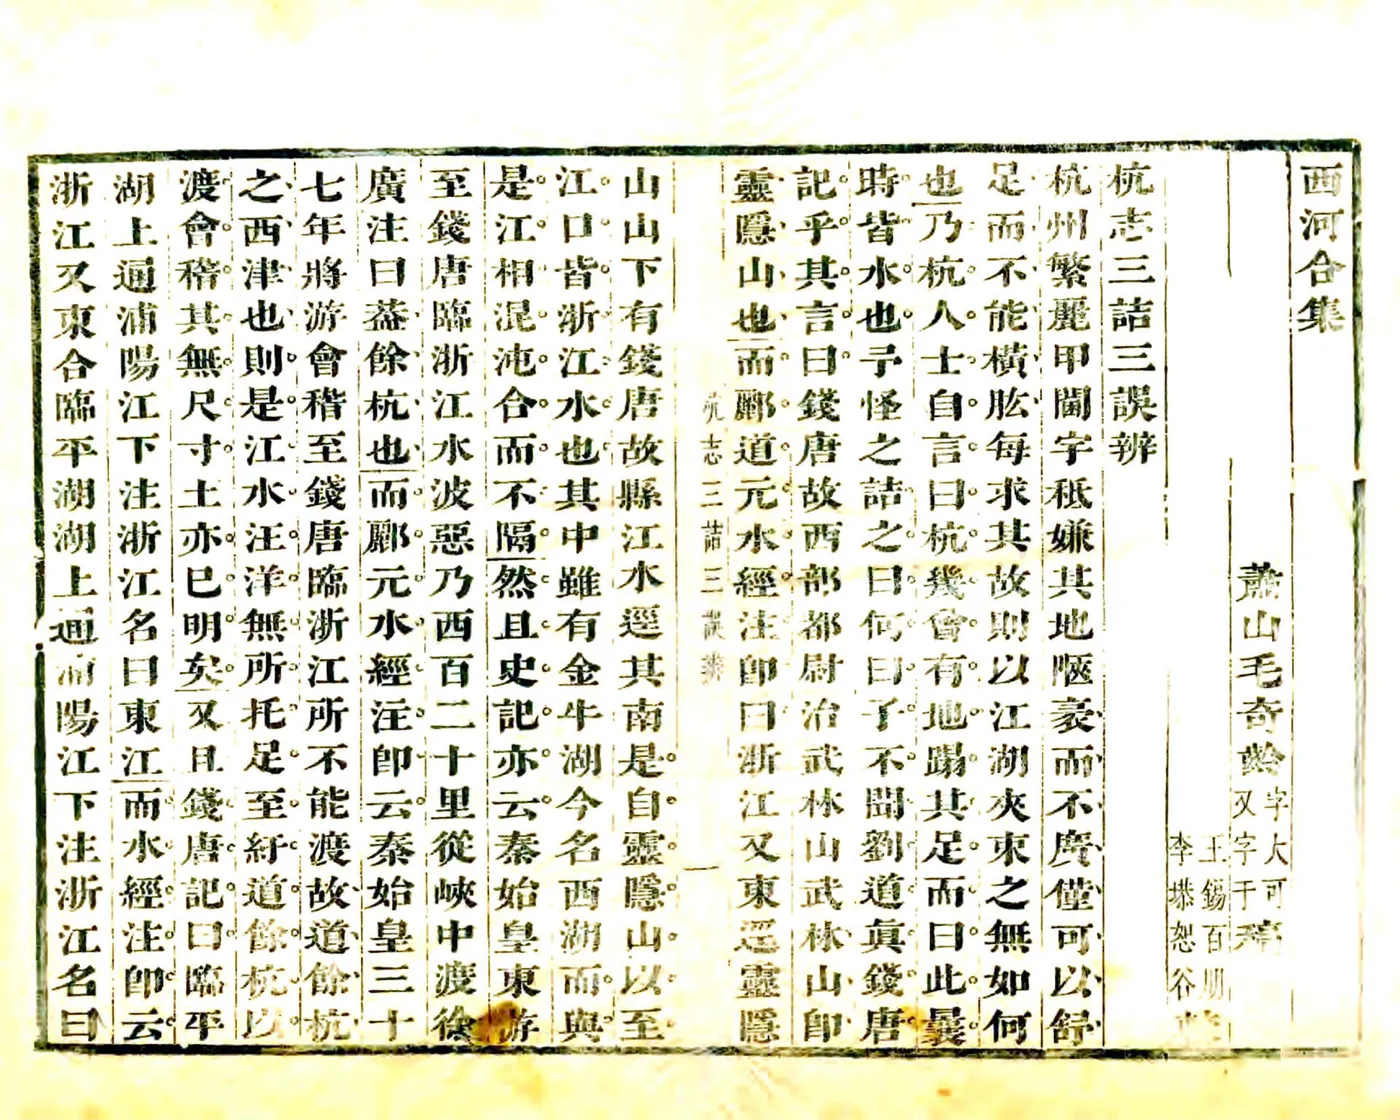 西河合集
蕭山毛奇齡字大可又字于稿
王錫百朋
李塨恕谷
杭志三詰三誤辨
杭州繁麗甲閩字秪嫌其地陿豪而不廣僅可以舒
足而不能橫肱每求其故則以江湖夾束之無如何
也乃杭人士自言曰杭幾會有地蹋其足而曰此曩
時皆水也予怪之詰之曰何曰子不聞劉道眞錢唐
記乎其言曰錢唐故西部都尉治武林山武林山卽
靈隱山也而酈道元水經注卽曰浙江又東逕靈隱
杭志三詰三誤辨
一
山山下有錢唐故縣江水逕其南是自靈隱山以至
江口皆浙江水也其中雖有金牛湖今名西湖而與
是江相混沌合而不隔然且史記亦云秦始皇東游
至錢唐臨浙江水波惡乃西百二十里從峽中渡徐
廣注曰葢餘杭也而酈元水經注卽云秦始皇三十
七年將游會稽至錢唐臨浙江所不能渡故道餘杭
之西津也則是江水汪洋無所托足至紆道餘杭以
渡會稽其無尺寸土亦已明矣又且錢唐記曰臨平
湖上通浦陽江下注浙江名曰東江而水經注卽云
浙江又東合臨平湖湖上通浦陽江下注浙江名曰